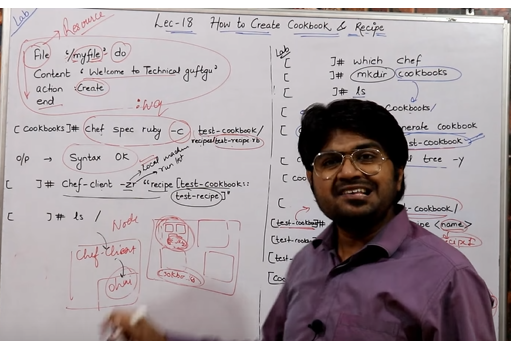 Lab
Lec-18 How to Create Cookbook & Recipe
Resource
File "/myfile" do
Content "Welcome to Technical guftgu"
action :create
end
[cookbooks]# chef spec ruby -c test-cookbook/
recipes/test-recipe.rb
O/P → Syntax OK
Local machine
run list
[ ]# chef-client -zr "recipe[test-cookbook::
test-recipe]"
[ ]# ls /
Node
Chef-Client
ohai
Cookbooks
Lab
[ ]# which chef
[ ]# mkdir cookbooks
[ ]# ls
cookbooks/
generate cookbook
test-cookbook
tree -y
[coo
test-cookbook/
[test-cookbook]#
recipe <name>
[test-cook
recipe1
[test-
[coo